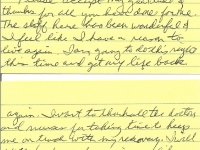 I Please accept my
thanks for all you have done for me.
The staff here has been wonderful &
I feel like I have a reason to
live again. I am going to do this right
this time and get my life back.
again. I want to thank all the doctors
and nurses for taking time to keep
me on track with my recovery. I will